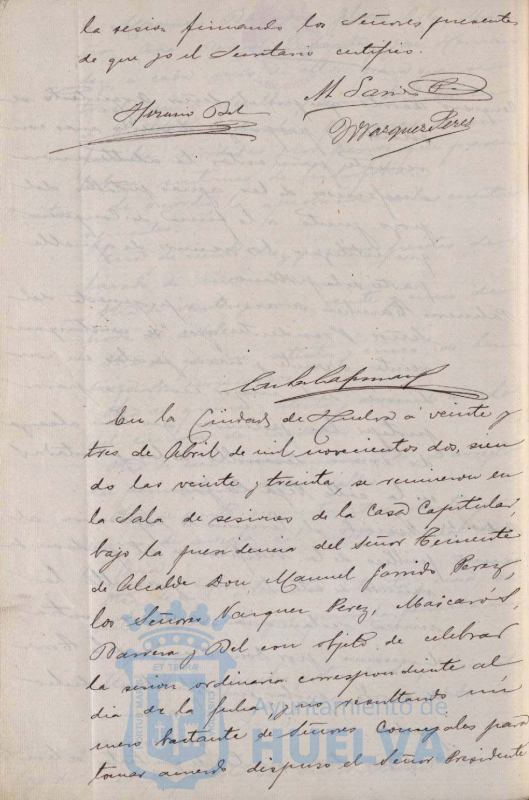 la sesion firmando los Señores presentes
de que yo el Secretario certifico.
Horacio Bel
M Garrido P.
Vazquez Perez
En la Ciudad de Huelva á veinte y
tres de Abril de mil novecientos dos, sien
do las veinte y treinta, se reunieron en
la Sala de sesiones de la Casa Capitular,
bajo la presidencia del Señor Teniente
de Alcalde Don Manuel Garrido Perez,
los Señores Vazquez Perez, Mascarós,
Barrera y Bel con objeto de celebrar
la sesion ordinaria correspondiente al
dia de la fecha y no resultando nú
mero bastante de Señores Concejales para
tomar acuerdo dispuso el Señor Presidente
ET TERRÆ
Ayuntamiento de
HUELVA